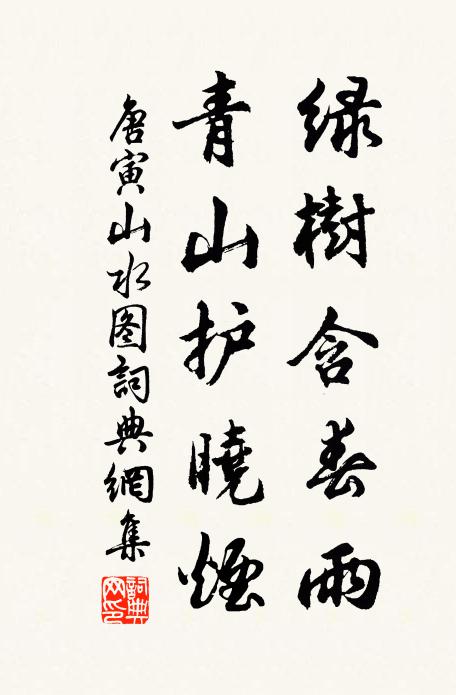 绿樹含春雨
青山护曉煙
唐寅山水图詞典網集
詞典网印